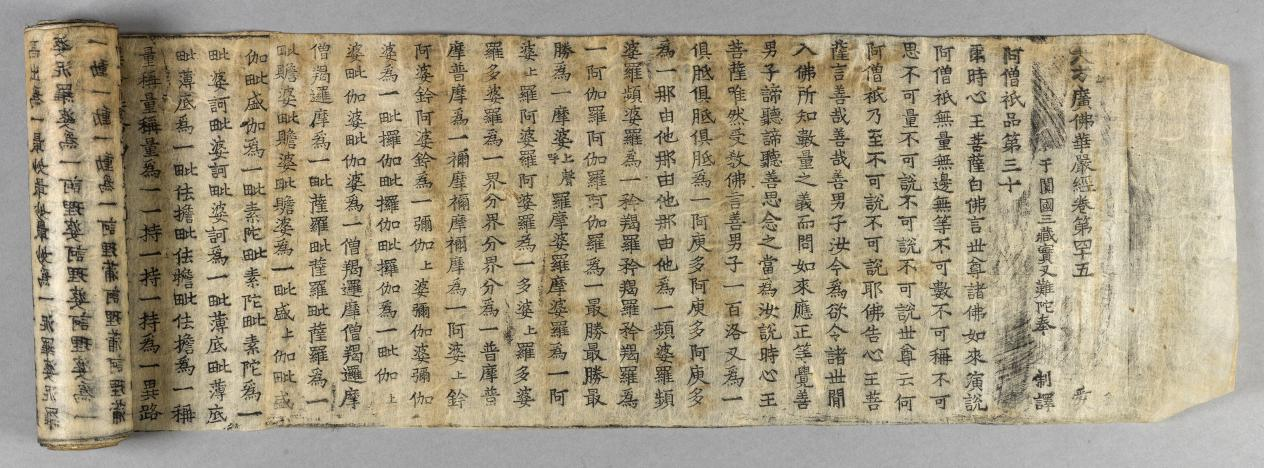 大方廣佛華嚴經卷第四十五
于闐國三藏實叉難陀奉 制譯
阿僧祇品第三十
爾時心王菩薩白佛言世尊諸佛如來演說
阿僧祇無量無邊無等不可數不可稱不可
思不可量不可說不可說不可說世尊云何
阿僧祇乃至不可說不可說耶佛告心王菩
薩言善哉善哉善男子汝今為欲令諸世間
入佛所知數量之義而問如來應正等覺善
男子諦聽諦聽善思念之當為汝說時心王
菩薩唯然受教佛言善男子一百洛叉為一
俱胝俱胝俱胝為一阿庾多阿庾多阿庾多
為一那由他那由他那由他為一頻婆羅頻
婆羅頻婆羅為一矜羯羅矜羯羅矜羯羅為
一阿伽羅阿伽羅阿伽羅為一最勝最勝最
勝為一摩婆上聲呼羅摩婆羅摩婆羅為一阿
婆上羅阿婆羅阿婆羅為一多婆上羅多婆
羅多婆羅為一界分界分界分為一普摩普
摩普摩為一禰摩禰摩禰摩為一阿婆上鈐
阿婆鈐阿婆鈐為一彌伽上婆彌伽婆彌伽
婆為一毗攞伽毗攞伽毗攞伽為一毗伽上
婆毗伽婆毗伽婆為一僧羯邏摩僧羯邏摩
僧羯邏摩為一毗薩羅毗薩羅毗薩羅為一
毗贍婆毗贍婆毗贍婆為一毗盛上伽毗盛
伽毗盛伽為一毗素陀毗素陀毗素陀為一
毗婆訶毗婆訶毗婆訶為一毗薄底毗薄底
毗薄底為一毗佉擔毗佉擔毗佉擔為一稱
量稱量稱量為一一持一持一持為一異路